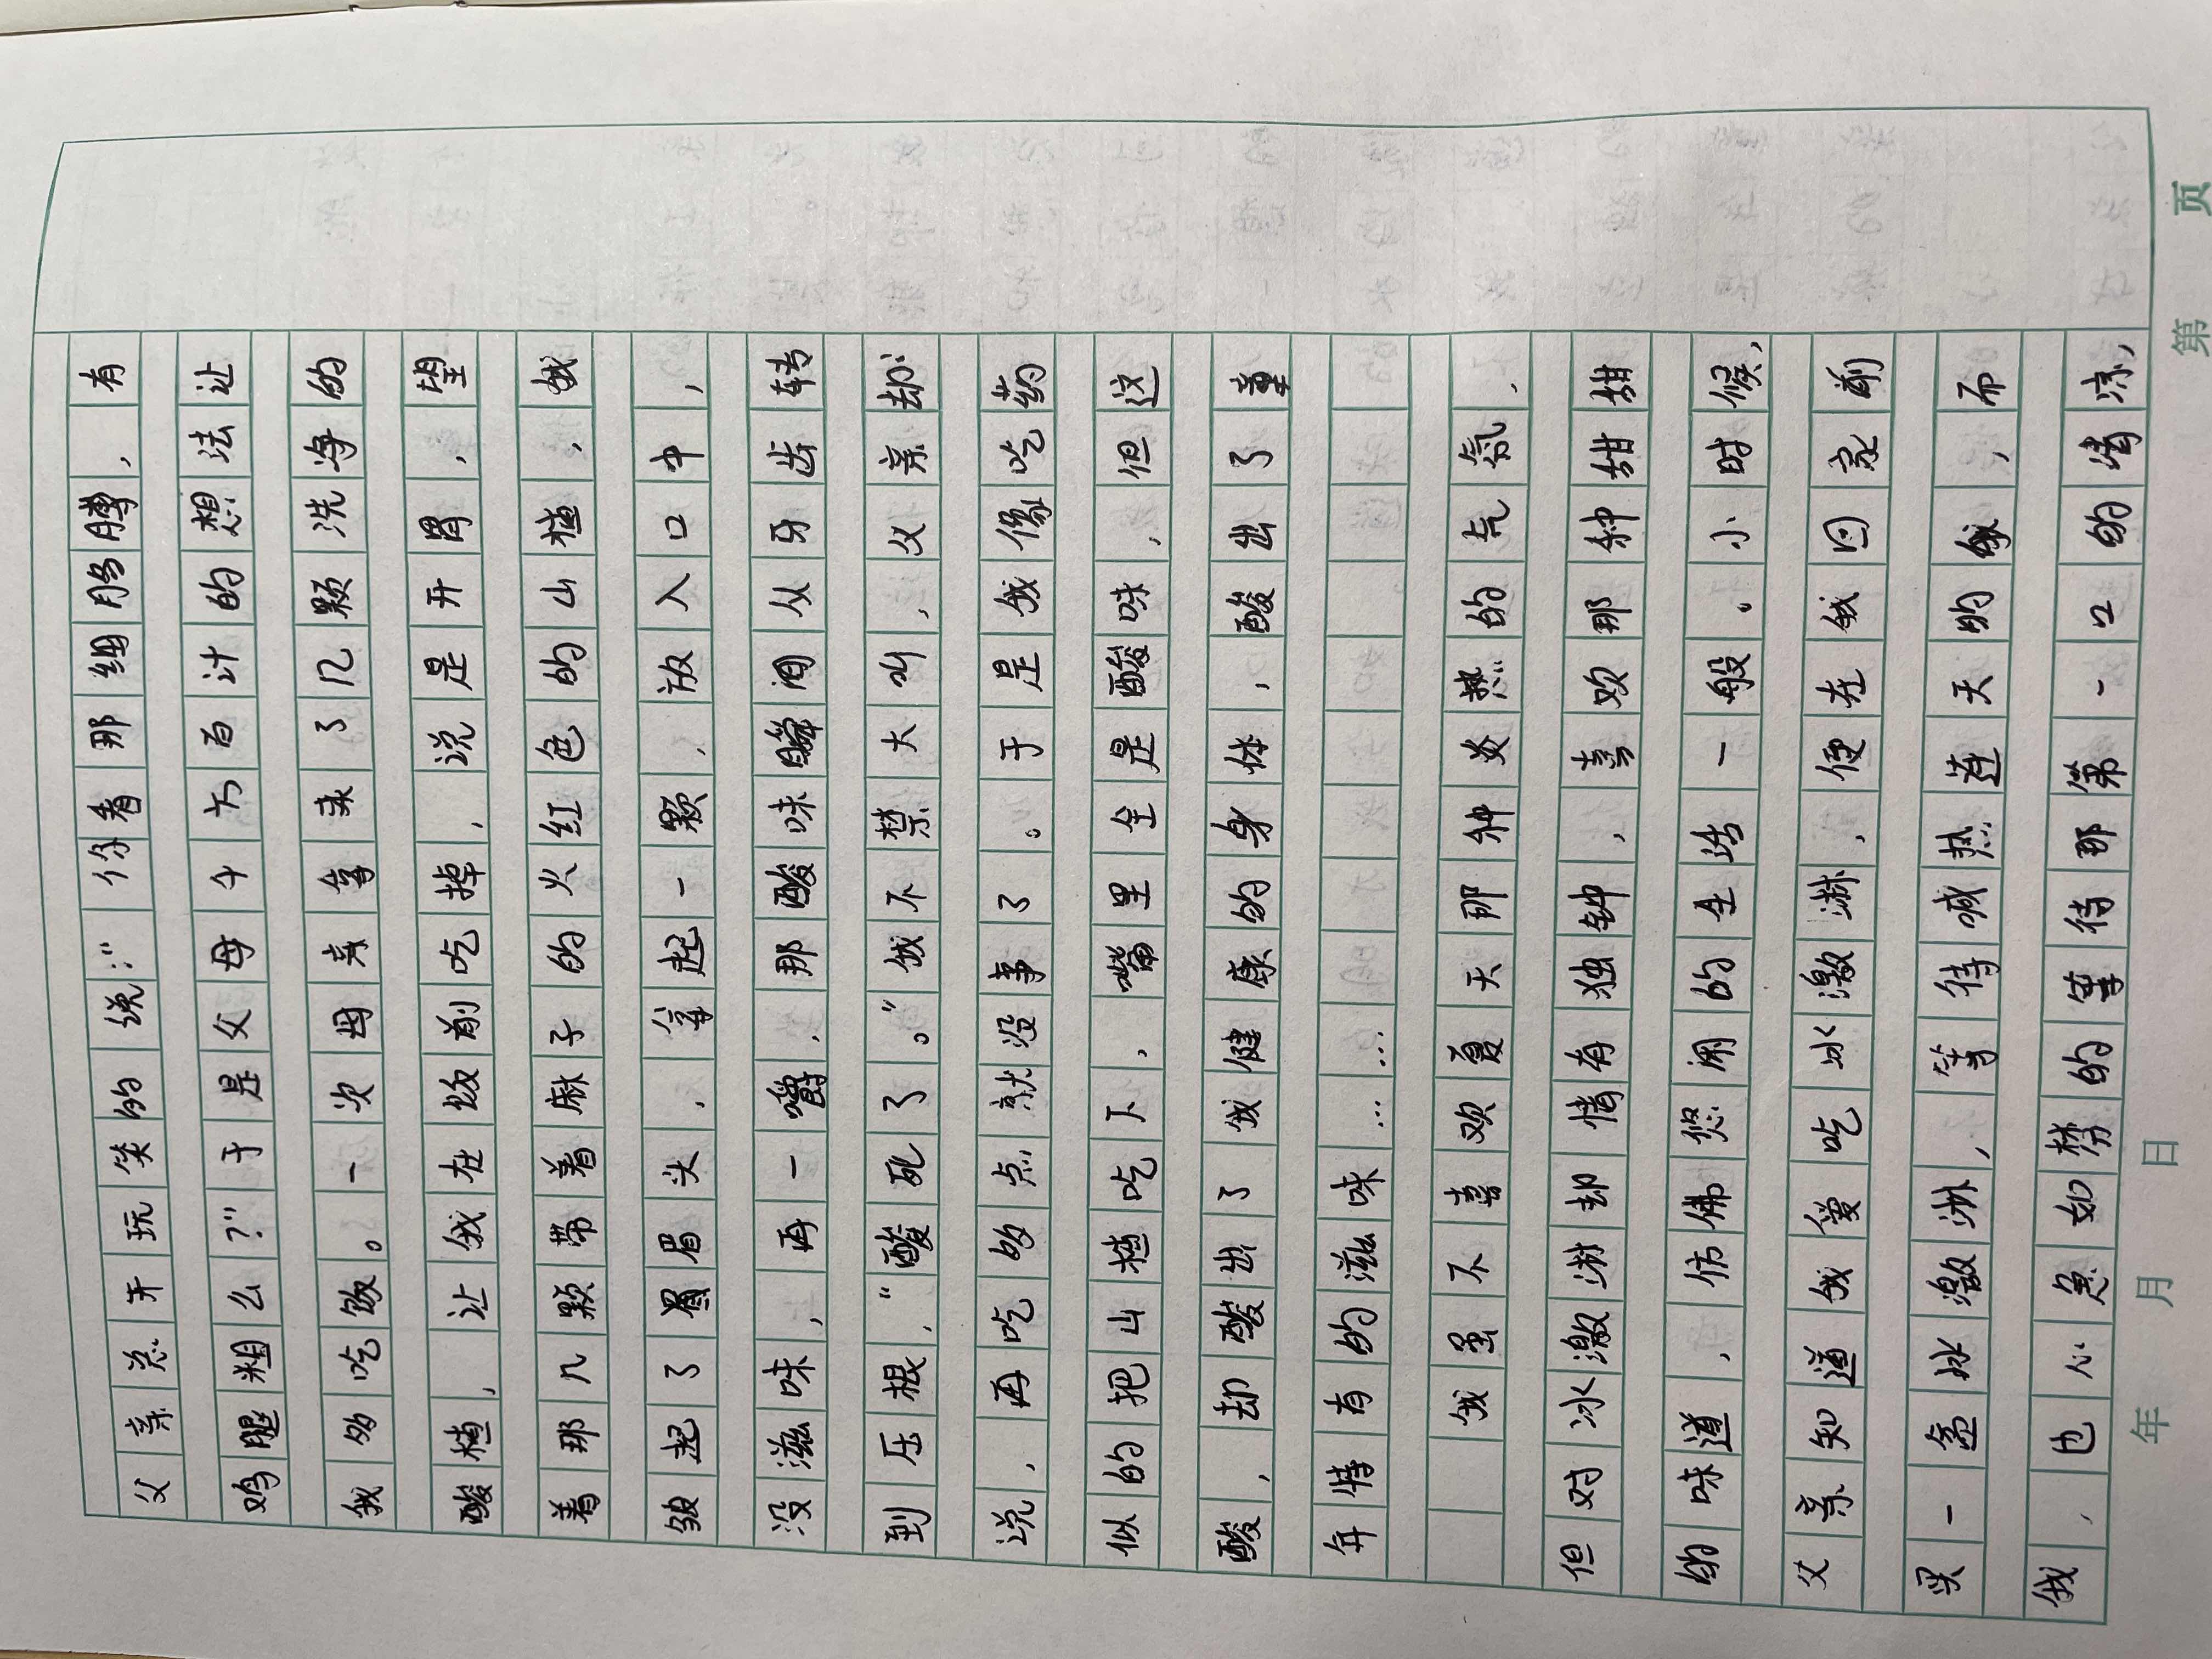 父亲总开玩笑的说:“你看那细胳膊,有
鸡腿粗么?”于是父母千方百计的想法让
我多吃饭。一次母亲拿来了几颗洗净的
酸楂,让我在饭前吃掉,说是开胃,望
着那几颗带着麻子的火红色的山楂,我
皱起了眉眉头,拿起一颗,放入口中,
没滋味,再一嚼,那酸味瞬间从牙齿转
到压根,“酸死了。”我不禁大叫,父亲却
说,再吃多点就没事了。于是我像吃药
似的把山楂吃下,嘴里全是酸味,但这
酸,却酸出了我健康的身体,酸出了童
年特有的滋味……
我虽不喜欢夏天那种炎热的气氛,
但对冰激淋却情有独钟,喜欢那种甜甜
的味道,仿佛悠闲的生活一般。小时候,
父亲知道我爱吃冰激淋,便在我回家前
买一盒冰激淋,等待喊热连天的我,而
我,也心急如焚的等待那第一口的清凉,
年 月 日
第 页